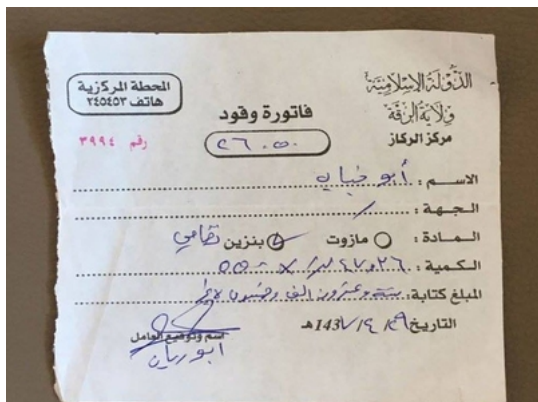 الدولة الاسلامية
ولاية الرقة
مركز الركاز
المحطة المركزية
هاتف ٢٤٥٤٥٣
فاتورة وقود
٢٦٠٥٠
رقم ٣٩٩٤
الاسم : أبو
الجهة : /
المادة : مازوت بنزين نظامي
الكمية : ٤٧,٣٦ ليتر / × ٥٥٠
المبلغ كتابة: ستة وعشرون الف وخمسون ليرة
التاريخ ٢٩/٤/143٧هـ
اسم وتوقيع العامل
ابو ريان